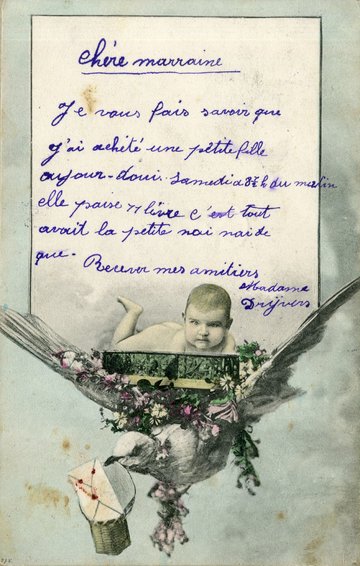 Chére marraine
Je vous fais savoir que
j'ai achété une pétite fille
aujour-doui. Samedi a 8½ h du matin
elle paise 11 livre c'ent tout
avait la petite noi nai de
que.
Recever mes amitiers
Madame
Drijvers